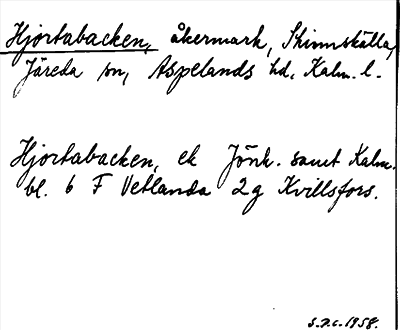 Hjortabacken, åkermark, Skinnskälla,
Järeda sn, Aspelands hd, Kalm. l.
Hjortabacken, ek Jönk. samt Kalm.
bl. 6 F Vetlanda 2g Kvillsfors.
S.P.C. 1958.